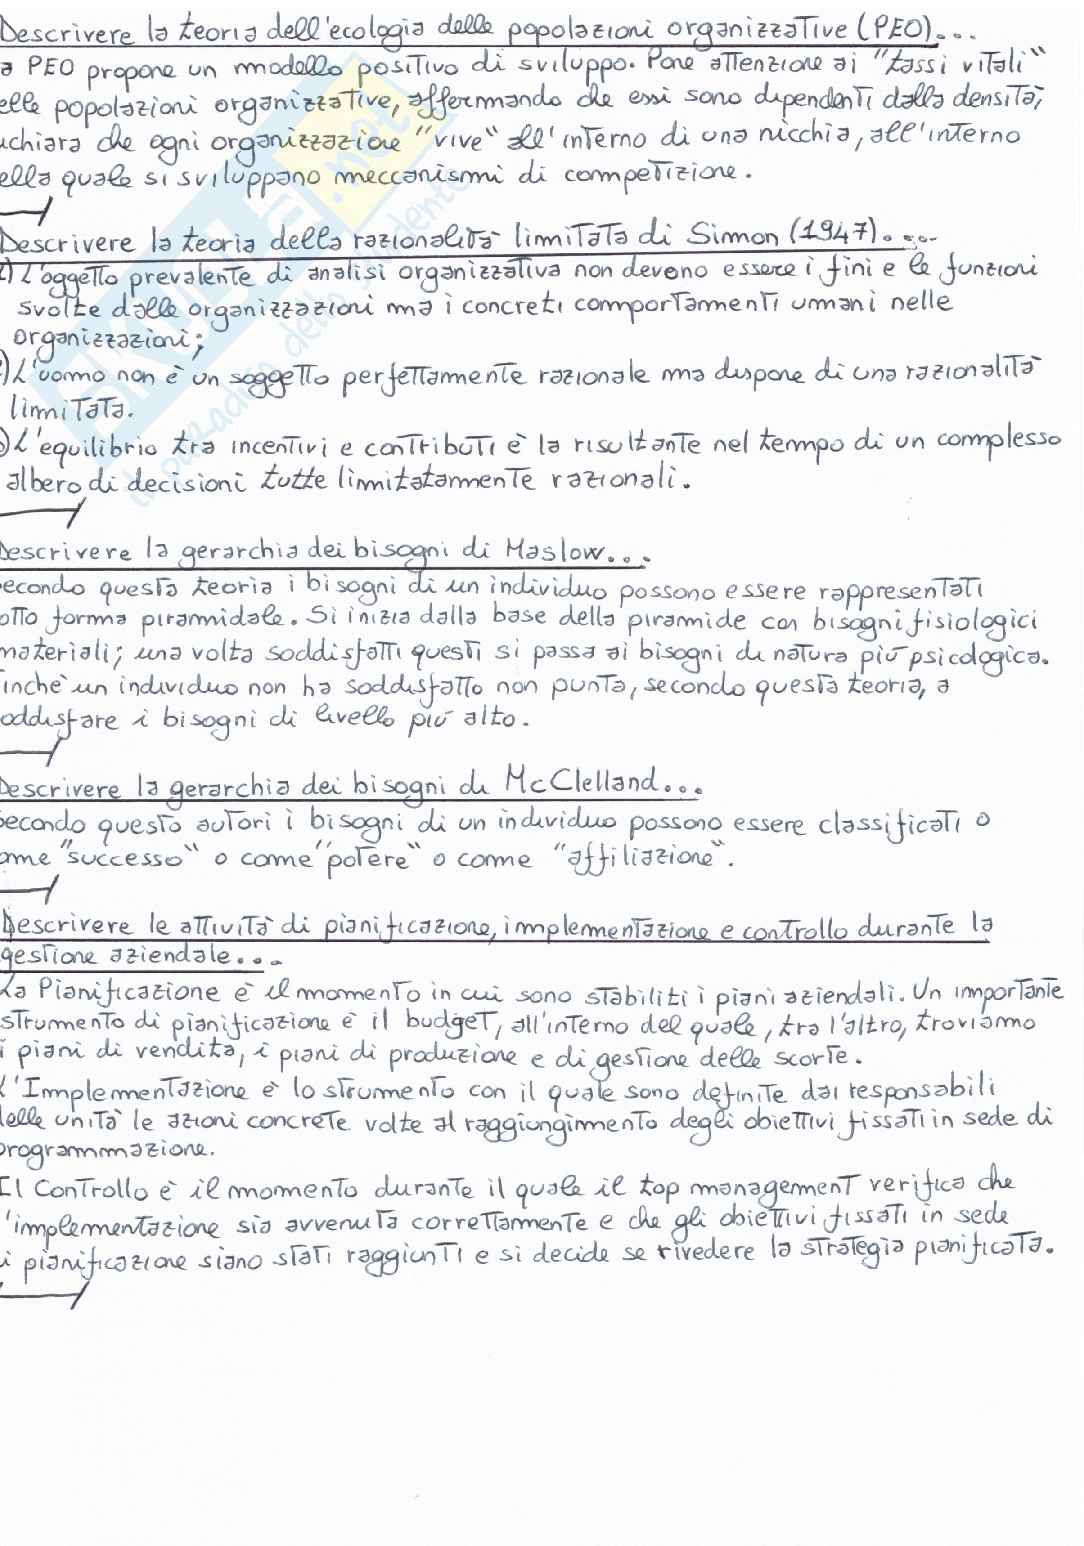 Descrivere la teoria dell'ecologia delle popolazioni organizzative (PEO)...
a PEO propone un modello positivo di sviluppo. Pone attenzione ai "tassi vitali"
elle popolazioni organizzative, affermando che essi sono dipendenti dalla densità,
ichiara che ogni organizzazione "vive" all'interno di una nicchia, all'interno
ella quale si sviluppano meccanismi di competizione.
Descrivere la teoria della razionalità limitata di Simon (1947)....
1) L'oggetto prevalente di analisi organizzativa non devono essere i fini e le funzioni
svolte dalle organizzazioni ma i concreti comportamenti umani nelle
organizzazioni;
) L'uomo non è un soggetto perfettamente razionale ma dispone di una razionalità
limitata.
) L'equilibrio tra incentivi e contributi è la risultante nel tempo di un complesso
albero di decisioni tutte limitatamente razionali.
Descrivere la gerarchia dei bisogni di Maslow...
econdo questa teoria i bisogni di un individuo possono essere rappresentati
otto forma piramidale. Si inizia dalla base della piramide con bisogni fisiologici
materiali; una volta soddisfatti questi si passa ai bisogni di natura più psicologica.
inchè un individuo non ha soddisfatto non punta, secondo questa teoria, a
oddisfare i bisogni di livello più alto.
Descrivere la gerarchia dei bisogni di McClelland...
Secondo questo autori i bisogni di un individuo possono essere classificati o
ome "successo" o come "potere" o come "affiliazione".
Descrivere le attività di pianificazione, implementazione e controllo durante la
gestione aziendale...
La Pianificazione è il momento in cui sono stabiliti i piani aziendali. Un importante
strumento di pianificazione è il budget, all'interno del quale, tra l'altro, troviamo
i piani di vendita, i piani di produzione e di gestione delle scorte.
L'Implementazione è lo strumento con il quale sono definite dai responsabili
delle unità le azioni concrete volte al raggiungimento degli obiettivi fissati in sede di
programmazione.
Il Controllo è il momento durante il quale il top management verifica che
l'implementazione sia avvenuta correttamente e che gli obiettivi fissati in sede
i pianificazione siano stati raggiunti e si decide se rivedere la strategia pianificata.